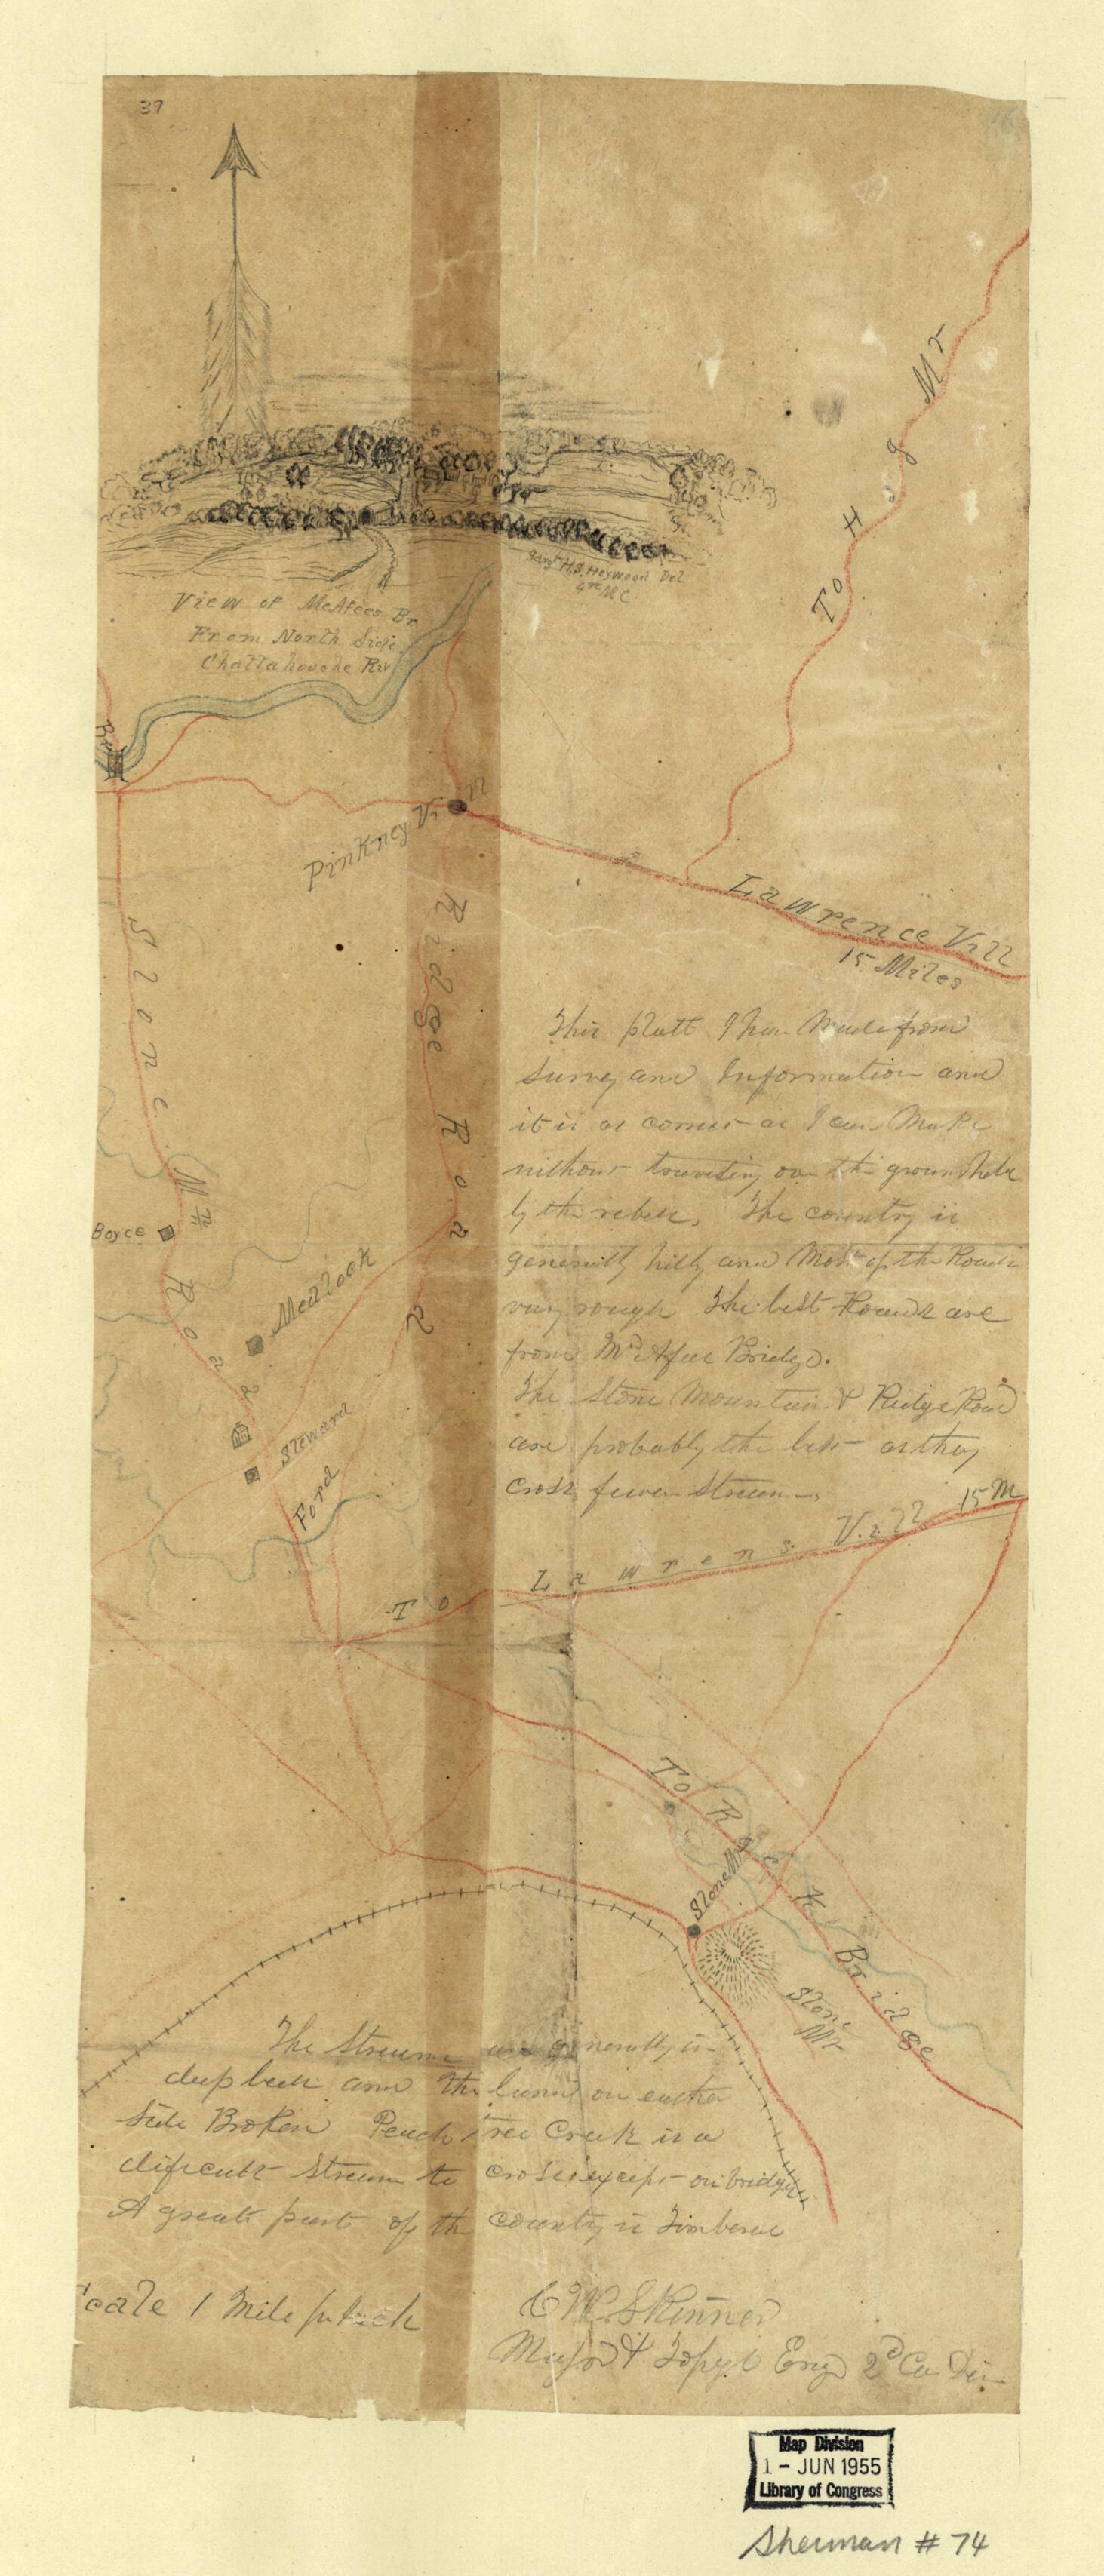 37
To H g Mt
Sargt H.S. Heywood Del
4th MC
View of McAfees Br
From North Side
Chattahooche Riv
Br
Pinkney Vill
Lawrence Vill
15 Miles
Stone Mt Road
Ridge Road
This platt I have Made from
Survey and Information and
it is as correct as I can Make
without traveling over the ground held
by the rebels. The country is
generally hilly and Most of the Roads
very rough The best Roads are
from McAfee Bridge.
The Stone Mountain & Ridge Road
are probably the best as they
cross fewer Streams
Boyce
Medlock
Steward
Ford
To Lawrens Vill 15 M
To Rock Bridge
Stone Mt
Stone
Mt
The Streams are generally in
deep beds and the land on either
Side Broken Peach tree Creek is a
dificult Stream to cross except on bridges
A great part of the country is Timbered
cale 1 Mile pr Inch
C W Skinner
Major & Topgl Eng 2d Ca Div
Map Division
1 - JUN 1955
Library of Congress
Sherman # 74